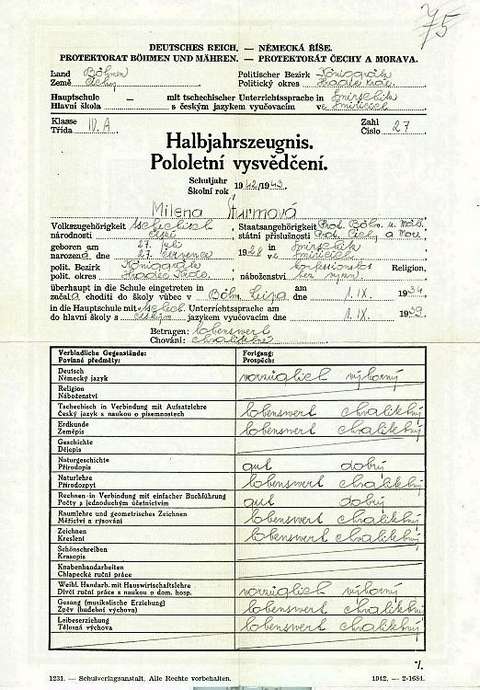 75
DEUTSCHES REICH. — NĚMECKÁ ŘÍŠE.
PROTEKTORAT BÖHMEN UND MÄHREN. — PROTEKTORÁT ČECHY A MORAVA.
Land Böhmen Politischer Bezirk Königgrätz
Země Čechy Politický okres Hradec Král.
Hauptschule – mit tschechischer Unterrichtssprache in Smirschitz
Hlavní škola s českým jazykem vyučovacím v Smiřicích
Klasse Zahl
Třída IV. A Číslo 27
Halbjahrszeugnis.
Pololetní vysvědčení.
Schuljahr
Školní rok 1942/1943.
Milena Šturmová
Volkszugehörigkeit tschechisch Staatsangehörigkeit Prot. Böhm. u. Mähr.
národnosti české státní příslušnosti Prot. Čechy a Mor.
geboren am 27. Juli in Smirschitz
narozená dne 27. července 1928 ve Smiřicích
polit. Bezirk Königgrätz konfessionslos Religion,
polit. okres Hradec Král. náboženství bez vyzn.
überhaupt in die Schule eingetreten in am
začala choditi do školy vůbec v Böhm. Leipa dne 1. IX. 1934.
in die Hauptschule mit tschech. Unterrichtssprache am
do hlavní školy s českým jazykem vyučovacím dne 1. IX. 1939.
Betragen: lobenswert
Chování: chvalitebné
Verbindliche Gegenstände: Fortgang:
Povinné předměty: Prospěch:
Deutsch
Německý jazyk vorzüglich výborný
Religion
Náboženství
Tschechisch in Verbindung mit Aufsatzlehre
Český jazyk s naukou o písemnostech lobenswert chvalitebný
Erdkunde
Zeměpis lobenswert chvalitebný
Geschichte
Dějepis
Naturgeschichte
Přírodopis gut dobrý
Naturlehre
Přírodozpyt lobenswert chvalitebný
Rechnen in Verbindung mit einfacher Buchführung
Počty s jednoduchým účetnictvím gut dobrý
Raumlehre und geometrisches Zeichnen
Měřictví a rýsování lobenswert chvalitebný
Zeichnen
Kreslení lobenswert chvalitebný
Schönschreiben
Krasopis
Knabenhandarbeiten
Chlapecké ruční práce
Weibl. Handarb. mit Hauswirtschaftslehre
Dívčí ruční práce s naukou o dom. hosp. vorzüglich výborný
Gesang (musikalische Erziehung)
Zpěv (hudební výchova) lobenswert chvalitebný
Leibeserziehung
Tělesná výchova lobenswert chvalitebný
1231. — Schulverlagsanstalt. Alle Rechte vorbehalten. 1942. — 2-1681.